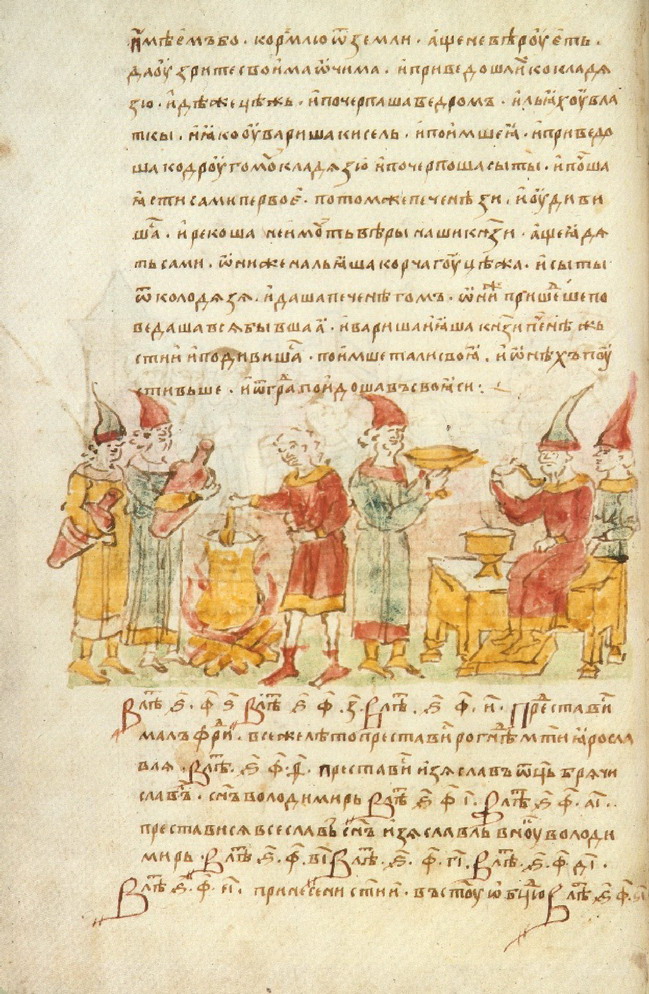 имѣемъ бо · кормлю ѿ земли · аще не вѣроуеть ·
да оузрите своима ѡчима · и приведоша и ко кладѧ
зю · идѣже цѣжь · и почерпаша ведромъ · и льꙗхоу в ла
ткы · и ꙗко оувариша кисель · и поимше ꙗ · и приведо
ша ко дроугомоу кладѧзю и почерпоша сыты · и поша
ꙗсти сами первое · потомже печенѣзи · и оудиви
шⷭ҇а · и рекоша не имоуть вѣры наши кн҃зи · аще ꙗдѧ
ть сами · ѡниже нальꙗша корчагоу цѣжа · и сыты
ѿ колодѧзѧ · и даша печенѣгомъ · ѡниⷤ пришеⷣше по
ведаша всѧ бывшаа · и вариша и ꙗша кн҃зи пеⷱ҇нѣжь
стии и подивишⷭ҇а · поимше тали своꙗ · и ѡнѣхъ поу
стивьше · и ѿ граⷣ поидоша въ своꙗси :
В лѣⷮ ѕ҃ · ф ѕ · В лѣⷮ ѕ · ф · з · В лѣⷮ · ѕ · ф · и · Преⷭ҇тави
малъфрⷣи · в сеже лѣто преставⷭ҇и рогнѣⷣ мт҃и ꙗросла
влѧ · В лѣⷮ · ѕ · ф · ѳ · преставⷭ҇и изѧславъ ѿц҃ь брѧчи
славⷧ · сн҃ъ володимирь В лѣⷮ ѕ · ф · і · В лѣⷮ · ѕ · ф · аі ·
престависѧ всеславъ сн҃ъ изѧславль внⷦ҇оу володи
мирь · В лѣⷮ · ѕ · ф · ві В лѣⷮ · ѕ · ф · гі · В лѣⷮ · ѕ · ф · ді ·
В лѣⷮ · ѕ · ф · еі · принесени ст҃ии · въ ст҃оую бц҃ю В лѣⷮ ѕ · ф · ѕі